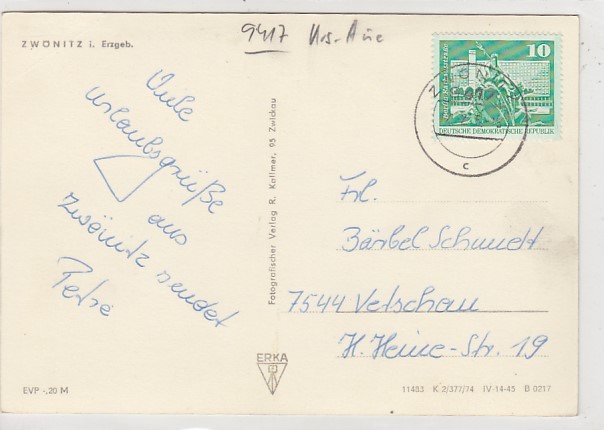 ZWÖNITZ i. Erzgeb.
9417
10
DEUTSCHE DEMOKRATISCHE REPUBLIK
C
Viele
Urlaubsgrüße
aus
Zwönitz sendet
Petra
Fotografischer Verlag R. Kallmer, 95 Zwickau
Frl.
Bärbel Schmidt
7544 Vetschau
H. Heine-Str. 19
ERKA
EVP -,20 M
11403 K 2/377/74 IV-14-45 B 0217